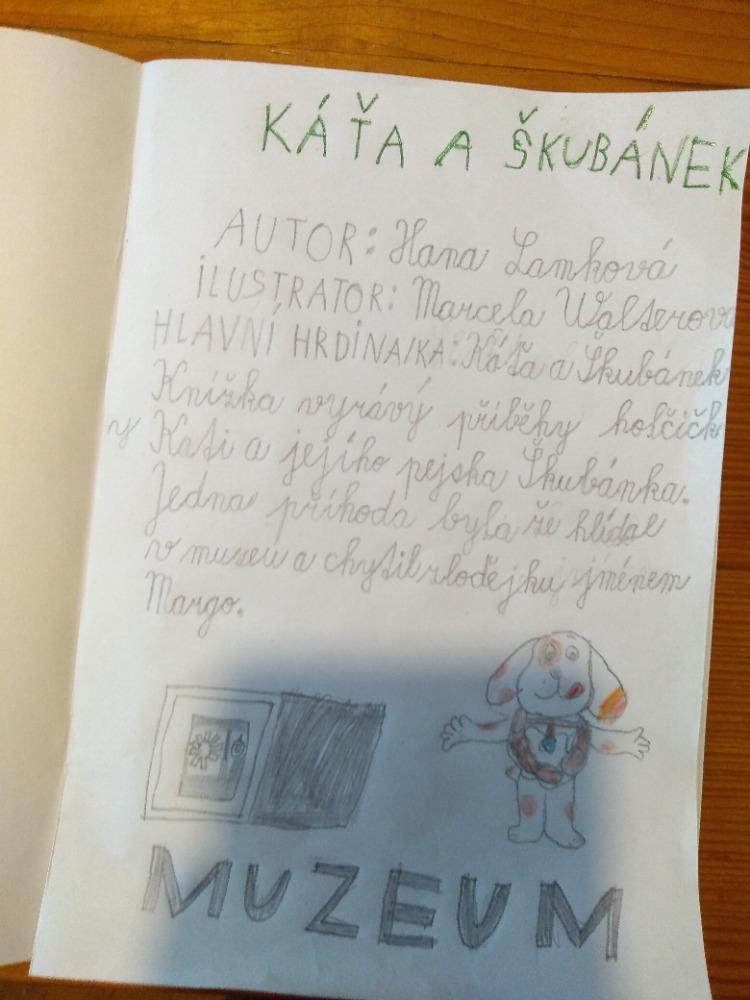 KÁŤA A ŠKUBÁNEK
AUTOR: Hana Lamková
ILUSTRATOR: Marcela Walterová
HLAVNÍ HRDINA/KA: Káťa a Škubánek
Knížka vyrávý příběhy holčičk
y Kati a jejího pejska Škubánka.
Jedna příhoda byla že hlídal
v muzeu a chytil zlodějku jménem
Margo.
MUZEUM